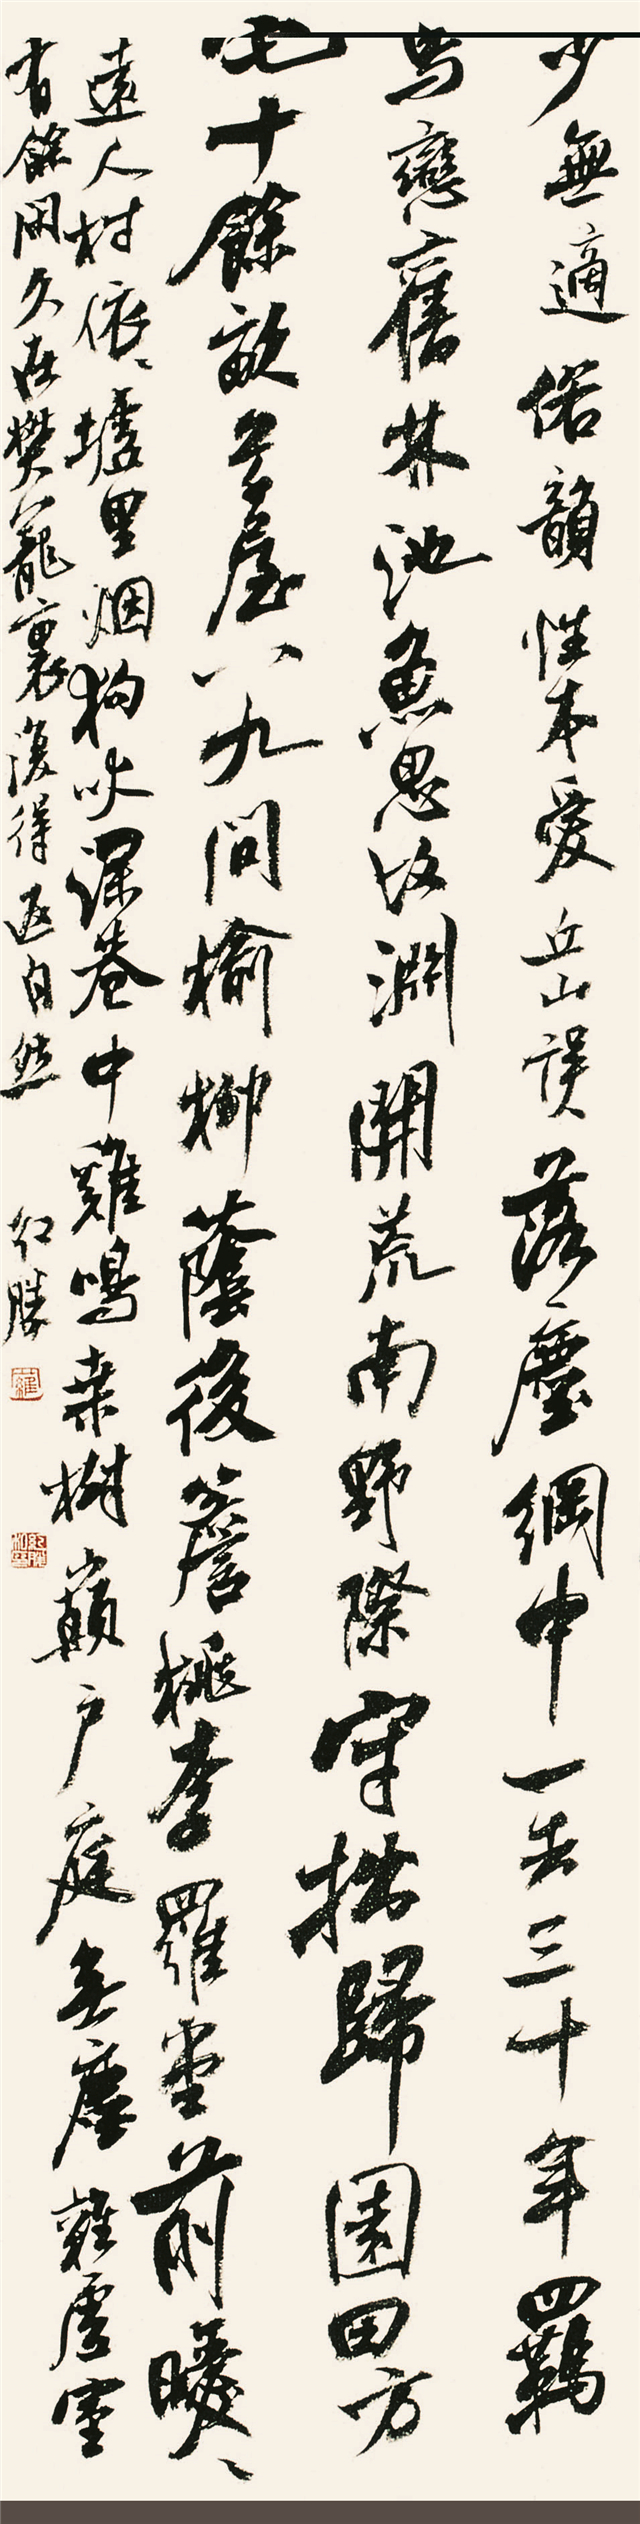 少無適俗韻性本愛丘山誤落塵網中一去三十年羈
鳥戀舊林池魚思故淵開荒南野際守拙歸園田方
宅十餘畝草屋八九間榆柳蔭後簷桃李羅堂前曖〻
遠人村依〻墟里烟狗吠深巷中雞鳴桑樹巔户庭無塵雜虛室
有餘閒久在樊籠裏復得返自然
紅勝
羅